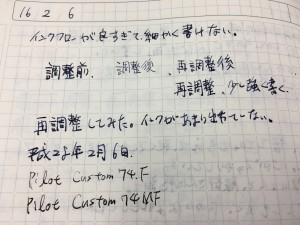 16 2 6
インクフローが良すぎて、細かく書けない。
調整前、 調整後、再調整後
再調整、少し強く書く。
再調整してみた。インクがあまり出ていない。
平成28年2月6日
Pilot Custom 74.F
Pilot Custom 74 MF